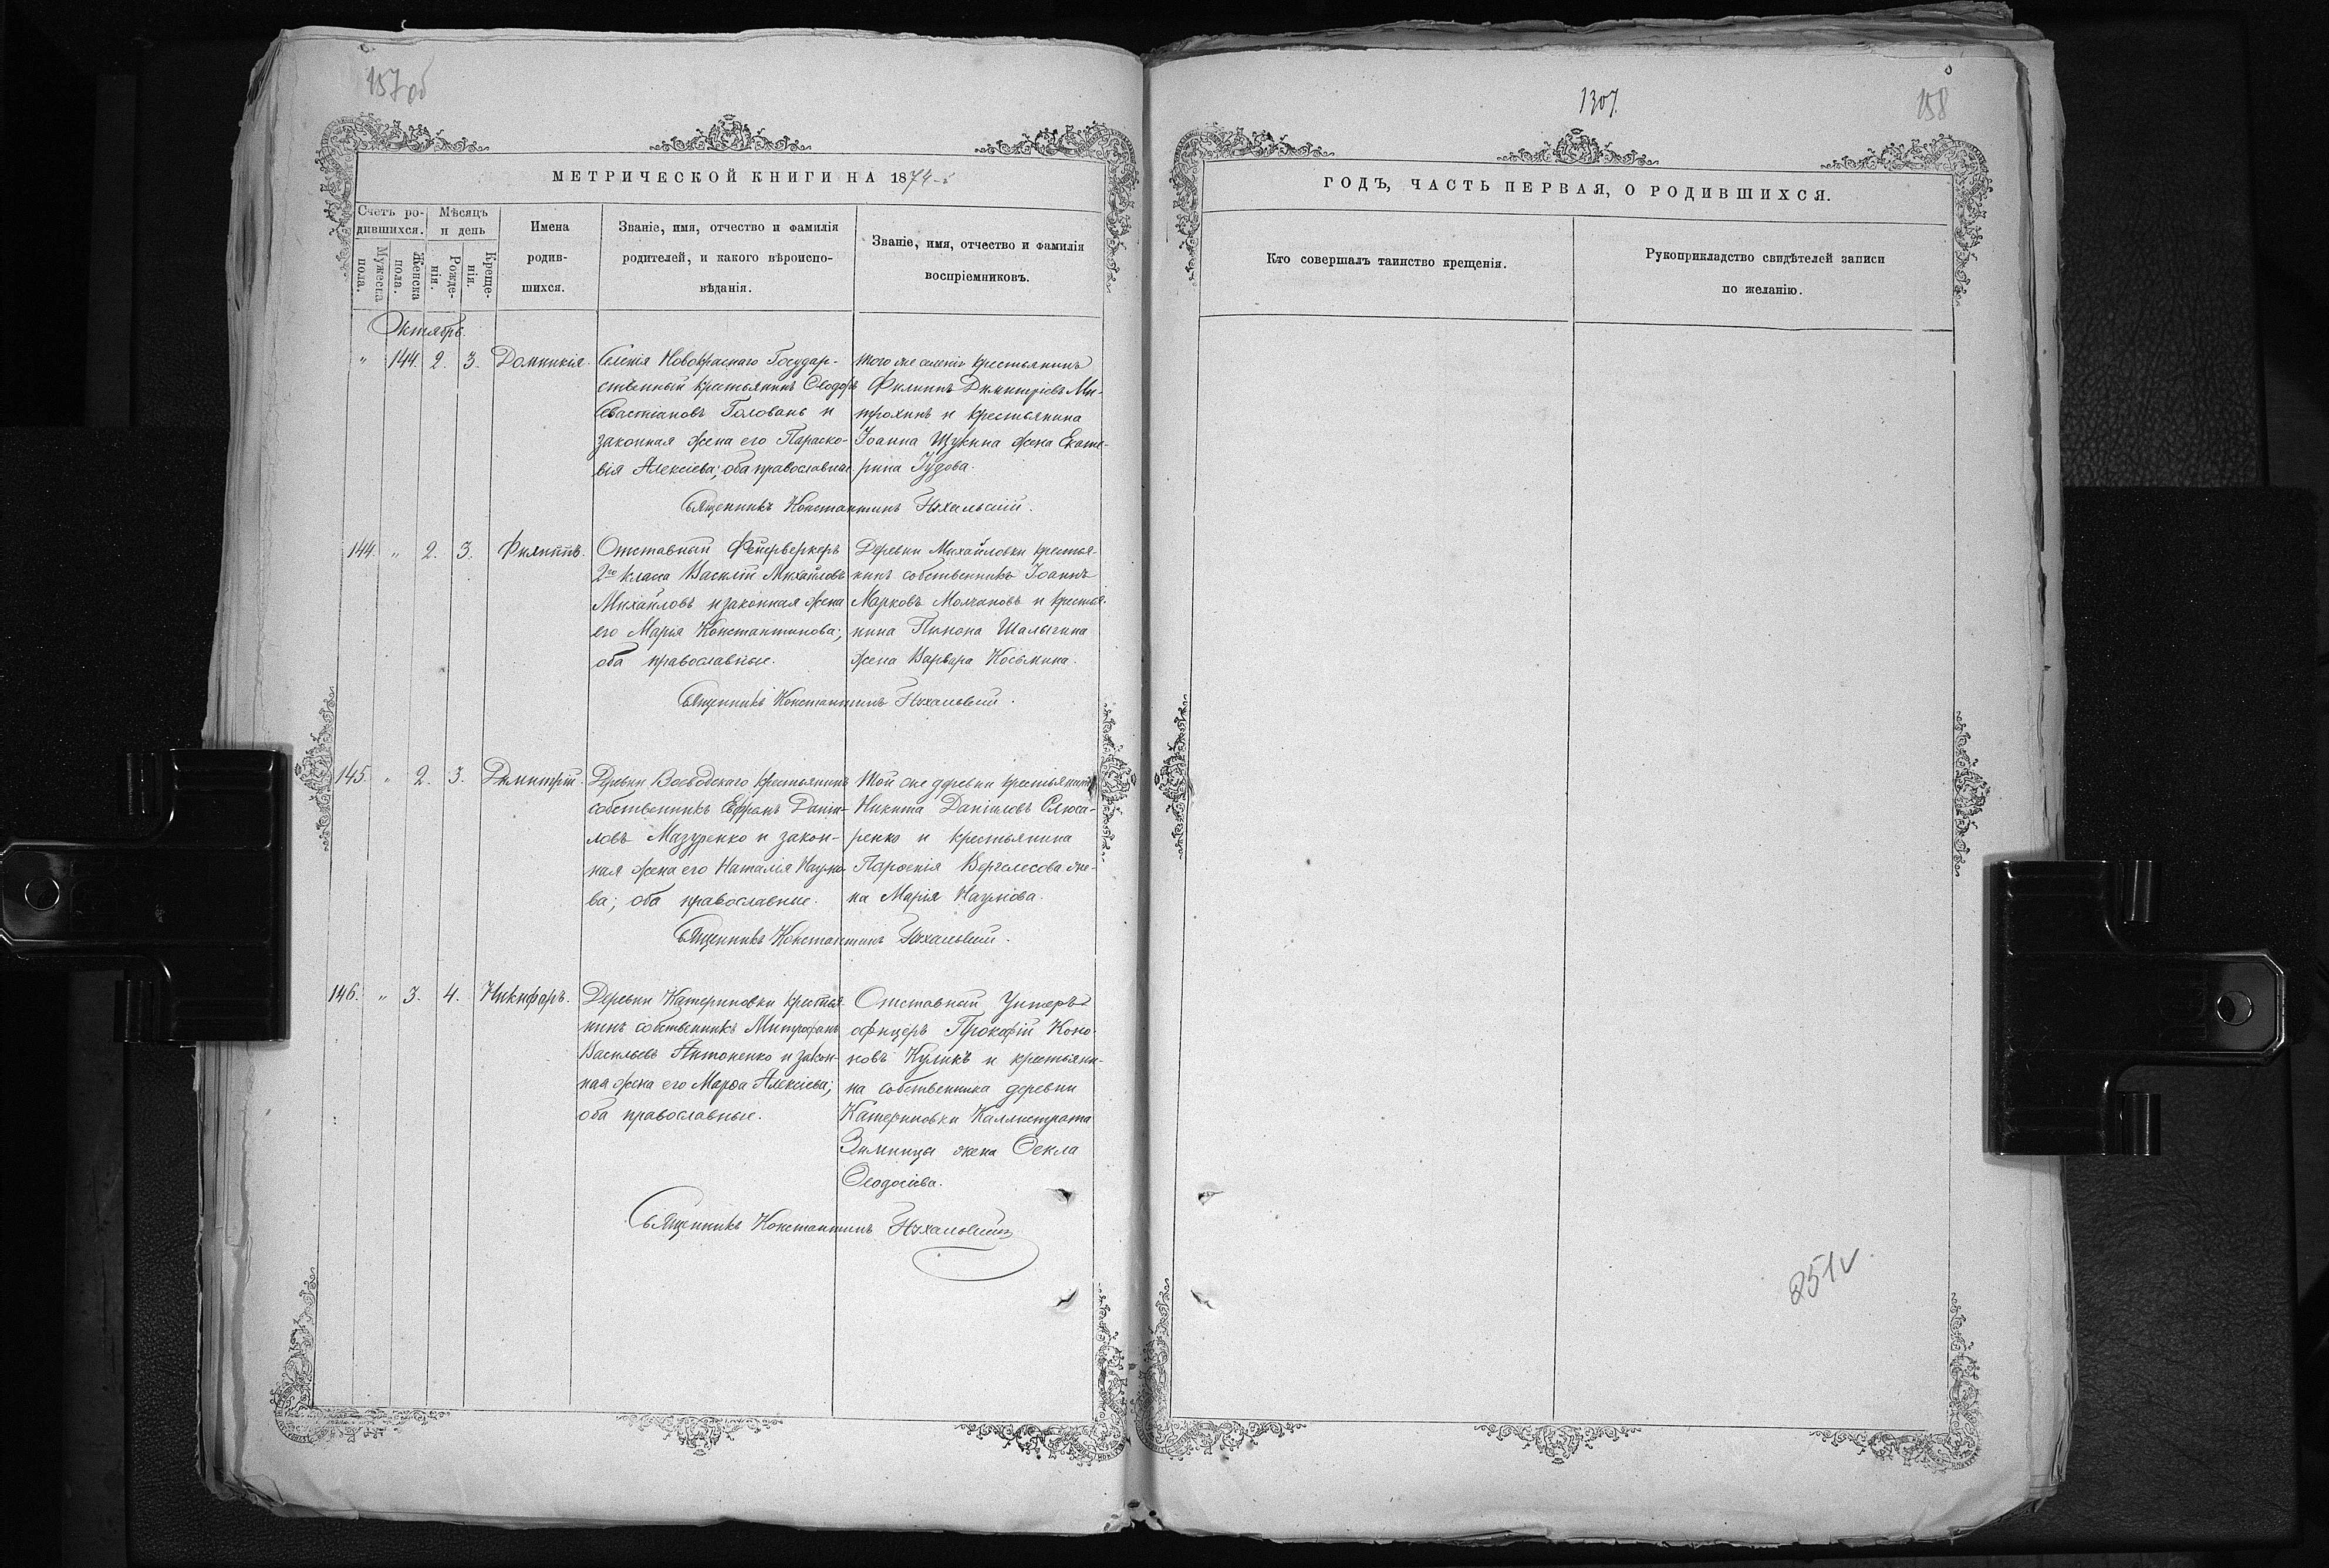 157об
1307.
158
МЕТРИЧЕСКОЙ КНИГИ НА 1874
ГОДЪ, ЧАСТЬ ПЕРВАЯ, О РОДИВШИХСЯ.
Счетъ ро-
дившихся.
Мужеска
пола.
Женска
пола.
Мѣсяцъ
и день
Рожде-
нія.
Креще-
нія.
Имена
родив-
шихся.
Званіе, имя, отчество и фамилія
родителей, и какого вѣроиспо-
вѣданія.
Званіе, имя, отчество и фамилія
воспріемниковъ.
Кто совершалъ таинство крещенія.
Рукоприкладство свидѣтелей записи
по желанію.
Октябрь.
" 144. 2. 3. Домникія.
Селенія Новокраснаго Государ-
ственный крестьянинъ Ѳеодоръ
Севастіановъ Головань и
законная жена его Параско-
вія Алексіева; оба православные
того же селенія крестьянинъ
Филиппъ Димитріевъ Ми-
трохинъ и крестьянина
Іоанна Щукина жена Екате-
рина Гудова.
Священникъ Константинъ
144. " 2. 3. Филиппъ.
Отставный Фейерверкеръ
2го класа Василій Михайловъ
Михайловъ и законная жена
его Марія Константинова;
оба православные.
Деревни Михайловки крестья-
нинъ собственникъ Іоаннъ
Марковъ Молчановъ и крестья-
нина Пимона Шалыгина
жена Варвара Косьмина.
Священникъ Константинъ
145. " 2. 3. Димитрій.
Деревни Воеводскаго крестьянинъ
собственникъ Ефремъ Даніи-
ловъ Мазуренко и закон-
ная жена его Наталія Наумо-
ва; оба православные.
той же деревни крестьянинъ
Никита Даніиловъ Слюса-
ренко и крестьянина
Парѳенія Вергелесова же-
на Марія Наумова.
Священникъ Константинъ
146. " 3. 4. Никифоръ.
Деревни Катериновки крестья-
нинъ собственникъ Митрофанъ
Васильевъ Антоненко и закон-
ная жена его Марѳа Алексіева;
оба православные.
Отставный Унтеръ
офицеръ Прокофій Коно-
новъ Куликъ и крестьяни-
на собственника деревни
Катериновки Каллистрата
Зимницы жена Ѳекла
Ѳеодосіева.
Священникъ Константинъ
851v